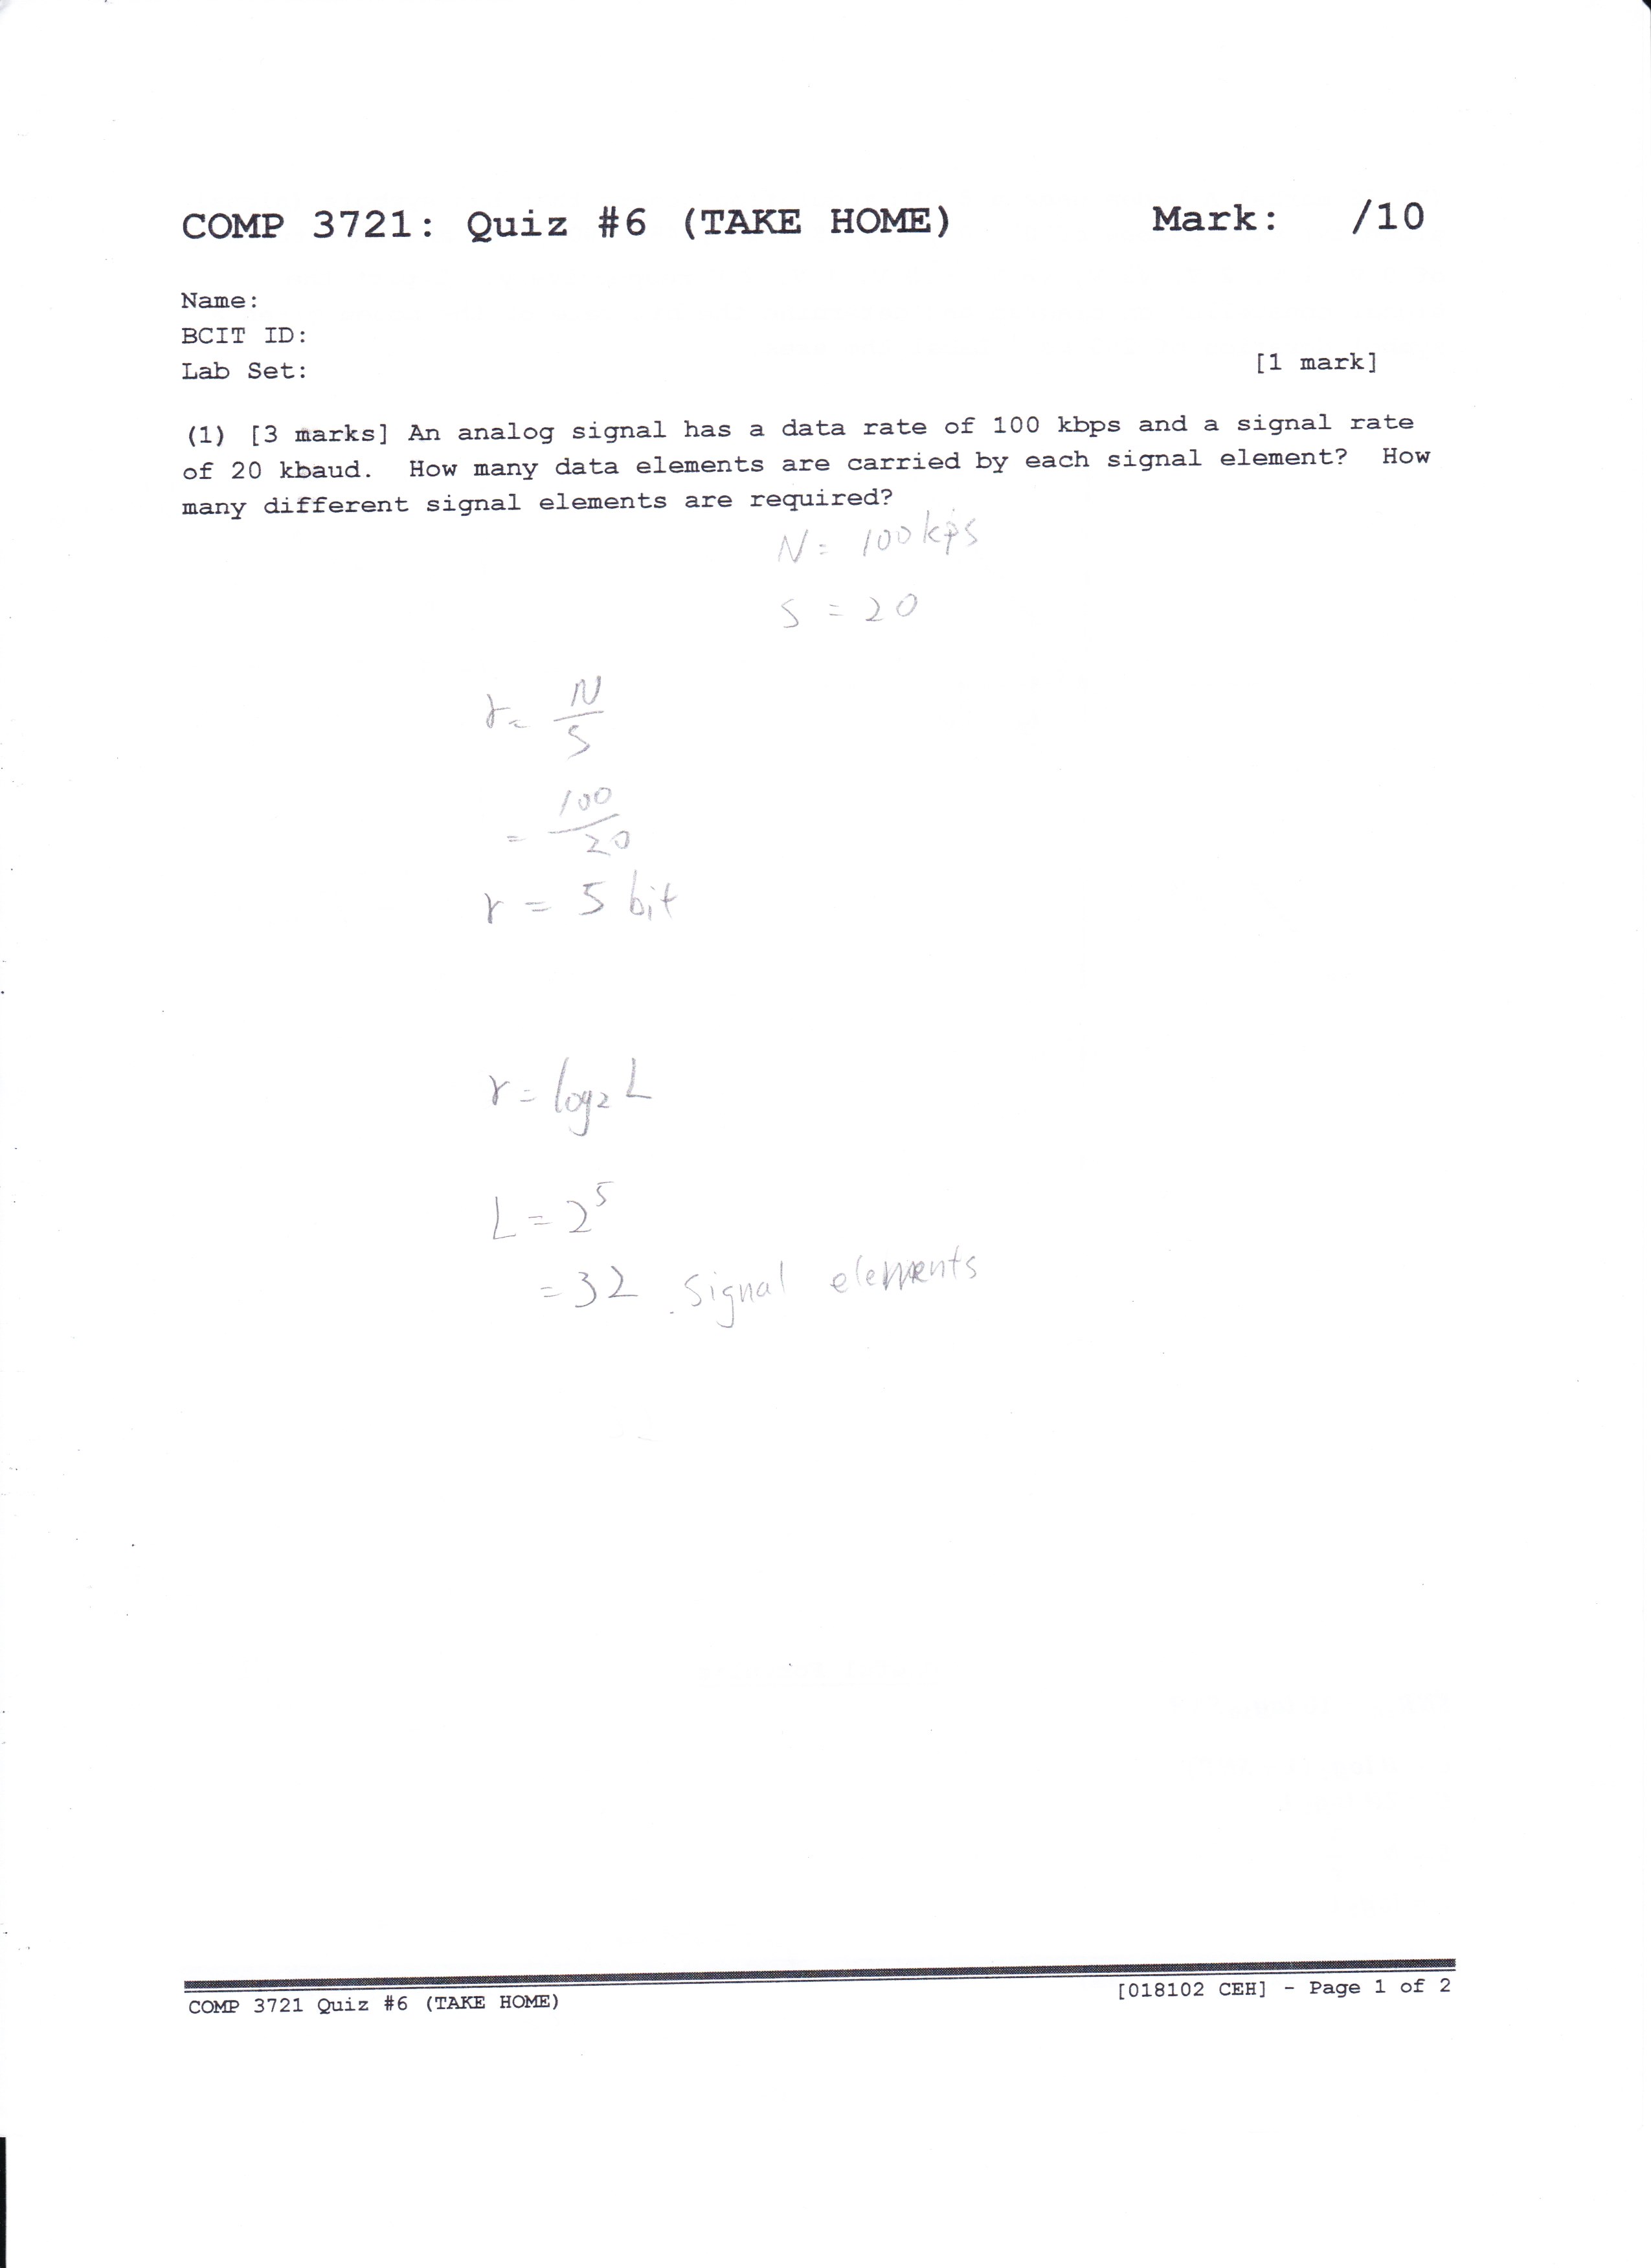 COMP 3721: Quiz #6 (TAKE HOME) Mark: /10
Name:
BCIT ID:
Lab Set: [1 mark]
(1) [3 marks] An analog signal has a data rate of 100 kbps and a signal rate
of 20 kbaud. How many data elements are carried by each signal element? How
many different signal elements are required?
N = 100 kps
S = 20
r = N/S
= 100/20
r = 5 bit
r = log₂ L
L = 2⁵
= 32 signal elements
COMP 3721 Quiz #6 (TAKE HOME) [018102 CEH] - Page 1 of 2